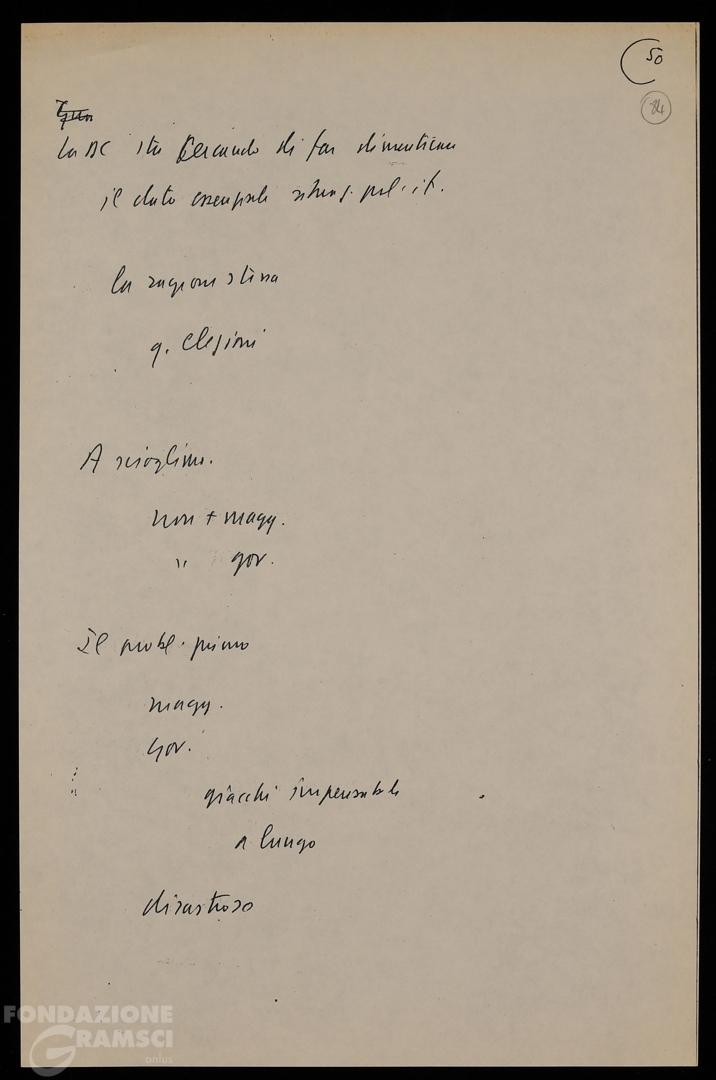 50
84
La DC sta cercando di far dimenticare
il dato essenziale situaz. pol. it.
la ragione stessa
q. elezioni
A scioglim.
non + magg.
" gov.
Il probl. primo
magg.
gov.
giacchi impensabile
a lungo
disastroso
FONDAZIONE
GRAMSCI
onlus